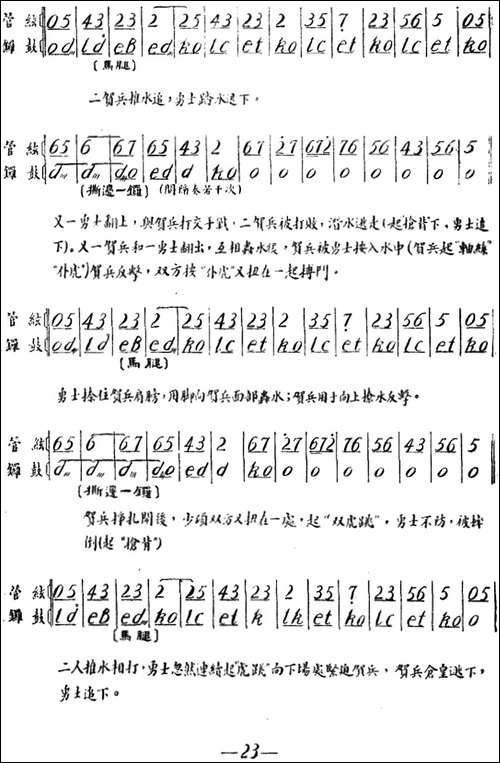 管絃 05 43 23 2 25 43 23 2 35 7 23 56 5 05
鑼鼓 od ld eB ed ko lc et ko lc et ko lc et ko
(馬腿)
二賀兵推水追,勇士踏水退下。
管絃 65 6 67 65 43 2 67 27 672 76 56 43 56 5
鑼鼓 d d do ed d ko o o o o o o o o
(撕邊一鑼) (間隔奏若干次)
又一勇士翻上,與賀兵打交手戰,二賀兵被打敗,潛水逃走(起"搶背"下,勇士追
下)。又一賀兵和一勇士翻出,互相轟水後,賀兵被勇士按入水中(賀兵起
"仆虎")賀兵反擊,双方按"仆虎"又扭在一起搏鬥。
管絃 05 43 23 2 25 43 23 2 35 7 23 56 5 05
鑼鼓 od ld eB ed ko lc et ko lc et ko lc et ko
(馬腿)
勇士捻住賀兵肩膀,用脚向賀兵面部轟水;賀兵用手向上撩水反擊。
管絃 65 6 67 65 43 2 67 27 672 76 56 43 56 5
鑼鼓 d d d do ed d ko o o o o o o o
(撕邊一鑼)
賀兵掙扎開後,少頃双方又扭在一處,起"双虎跳",勇士不防,被摔
倒(起"搶背")
管絃 05 43 23 2 25 43 23 2 35 7 23 56 5 05
鑼鼓 ld eB ed ko lc et k lk et lc et ko o
(馬腿)
二人推水相打,勇士忽然連續起"虎跳"向下場處緊追賀兵,賀兵倉皇逃下,
勇士追下。
—23—